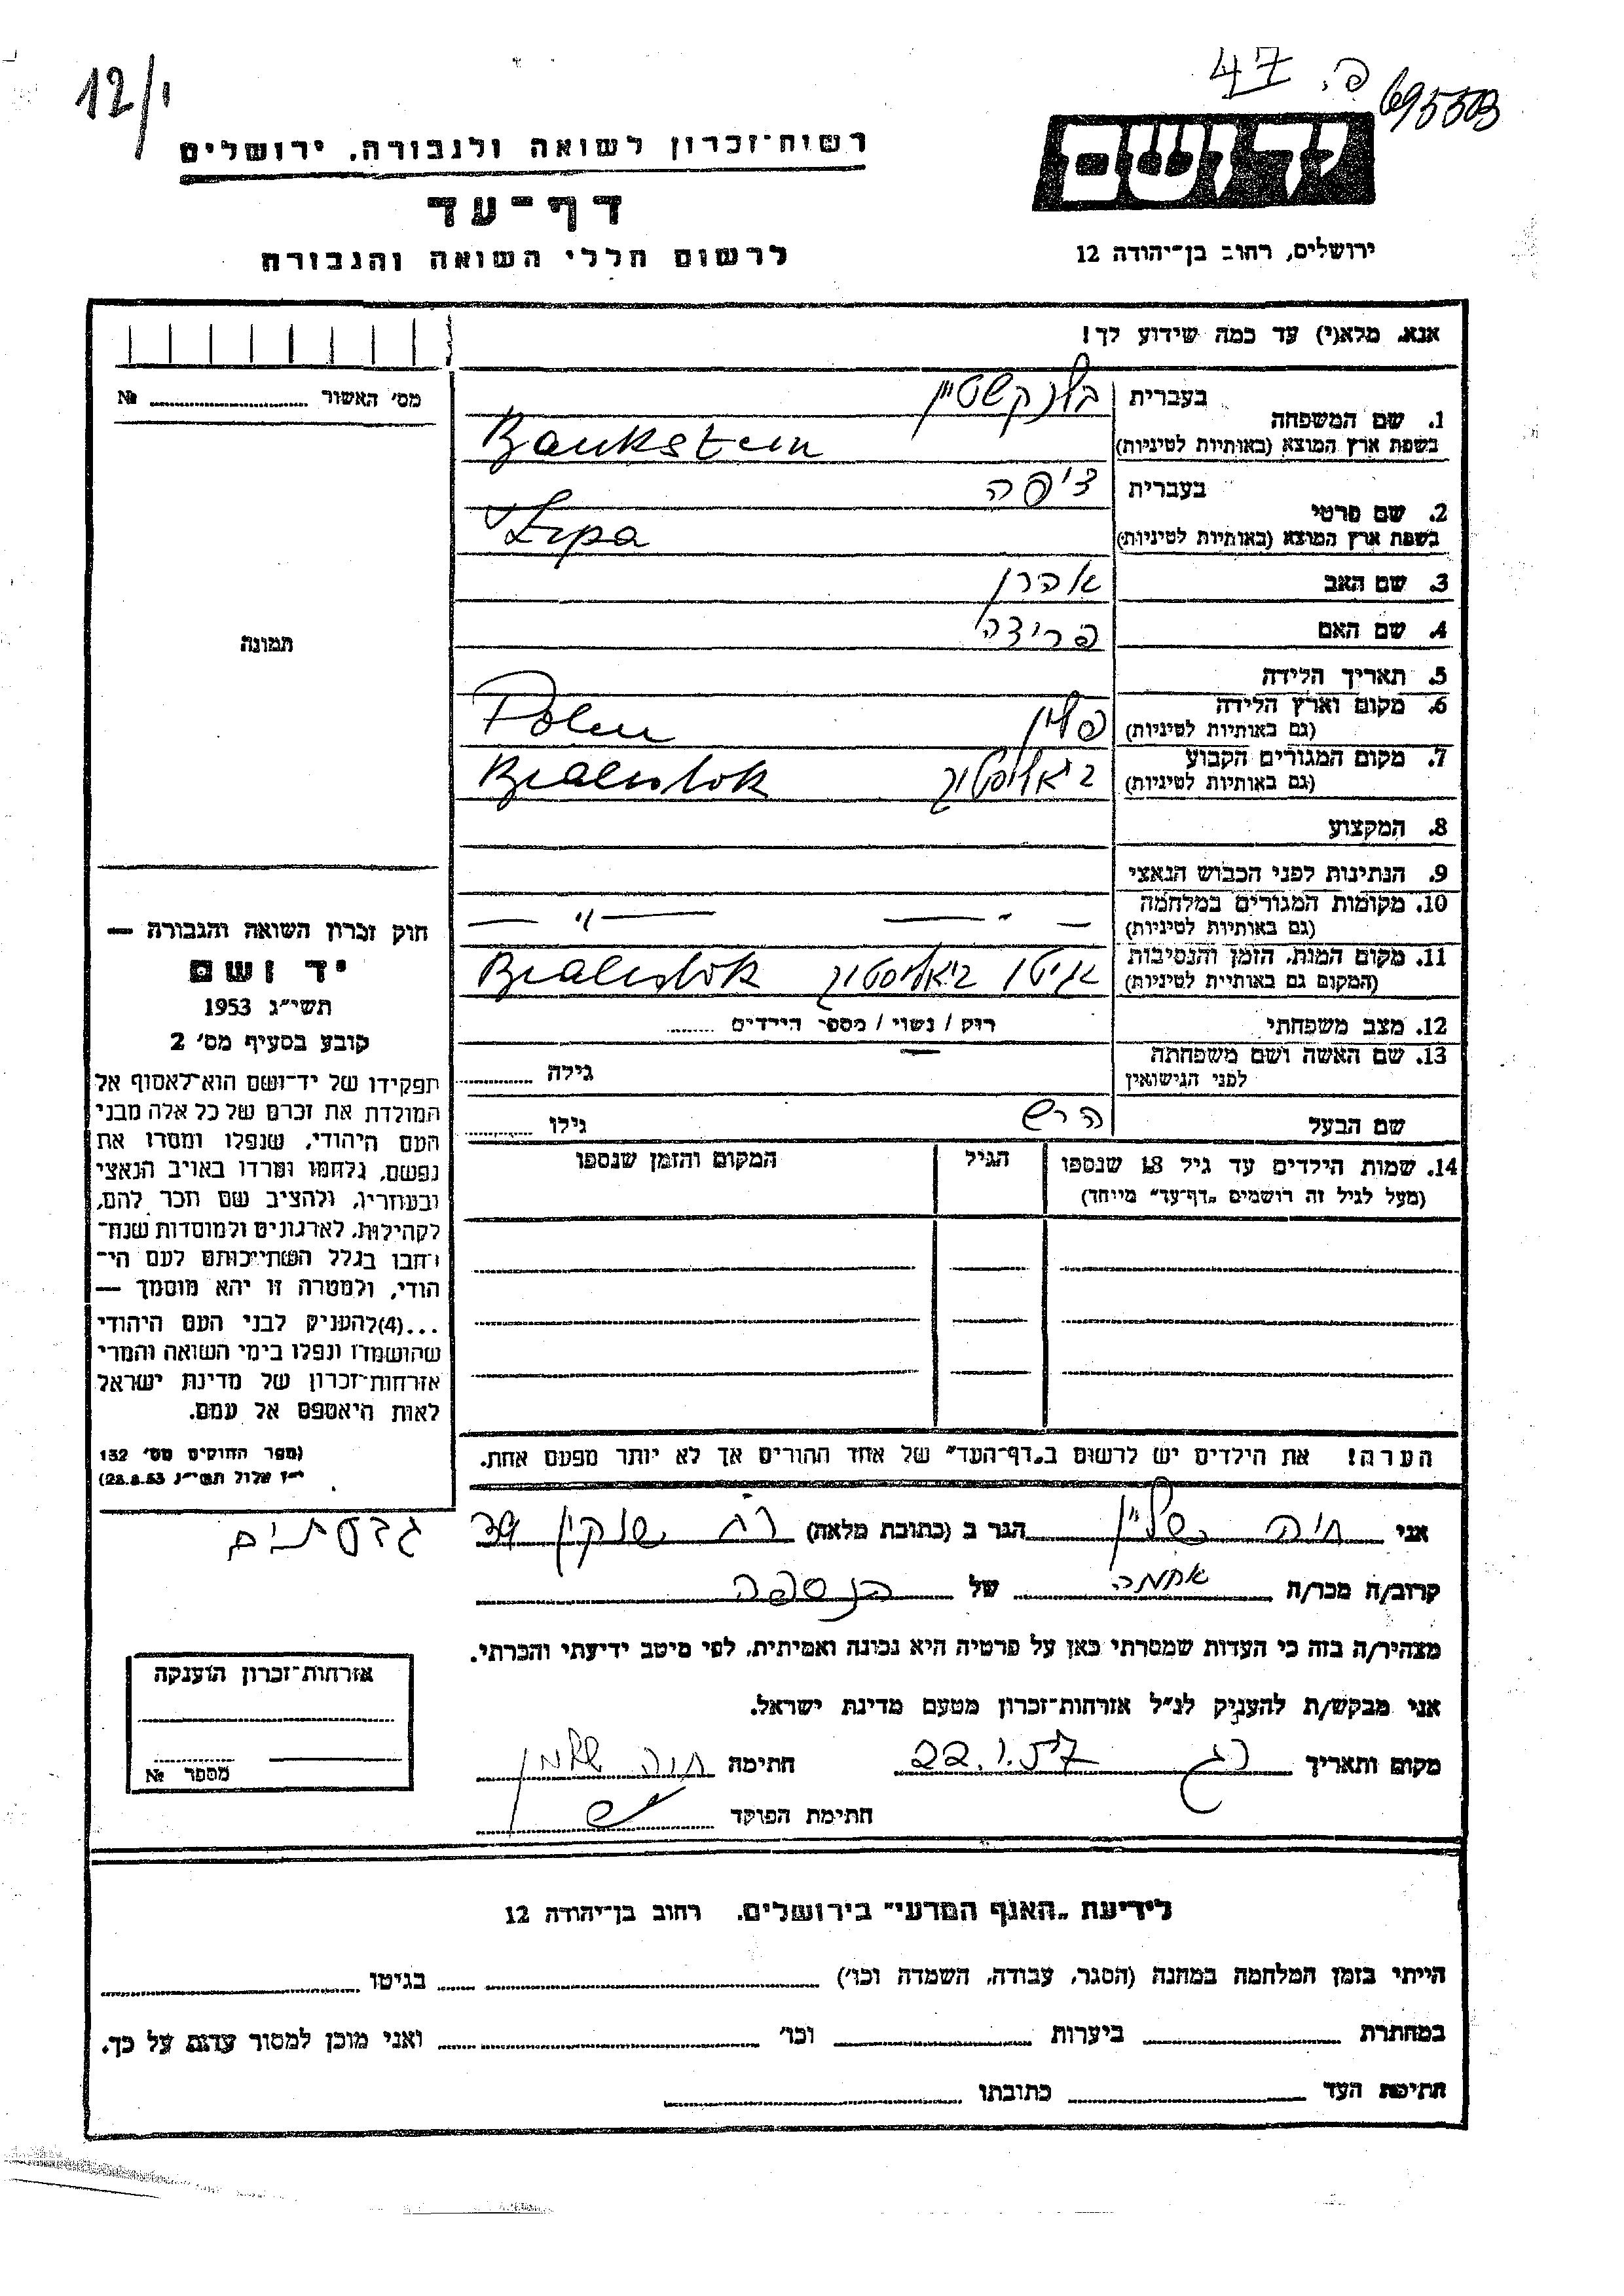 12/י
פ. 47
695503
רשות־זכרון לשואה ולגבורה, ירושלים
דף־עד
לרשום חללי השואה והגבורה
יד ושם
ירושלים, רחוב בן־יהודה 12
אנא, מלא(י) עד כמה שידוע לך!
מס' האשור № ........
תמונה
1. שם המשפחה בעברית בנקשטיין
בשפת ארץ המוצא (באותיות לטיניות) Bankstein
2. שם פרטי בעברית ציפה
בשפת ארץ המוצא (באותיות לטיניות) Zipa
3. שם האב אהרן
4. שם האם פרידה
5. תאריך הלידה
6. מקום וארץ הלידה פולין Polen
(גם באותיות לטיניות)
7. מקום המגורים הקבוע ביאליסטוק Bialistok
(גם באותיות לטיניות)
8. המקצוע
9. הנתינות לפני הכבוש הנאצי
10. מקומות המגורים במלחמה — " — — " —
(גם באותיות לטיניות)
11. מקום המות, הזמן והנסיבות גיטו ביאליסטוק Bialistok
(המקום גם באותיית לטיניות)
12. מצב משפחתי רוק / נשוי / מספר הילדים ........
13. שם האשה ושם משפחתה
לפני הנישואין גילה ........
שם הבעל הרש גילו ........
14. שמות הילדים עד גיל 18 שנספו הגיל המקום והזמן שנספו
(מעל לגיל זה רושמים „דף־עד" מייחד)
חוק זכרון השואה והגבורה —
יד ושם
תשי"ג 1953
קובע בסעיף מס' 2
תפקידו של יד־ושם הוא לאסוף אל
המולדת את זכרם של כל אלה מבני
העם היהודי, שנפלו ומסרו את
נפשם, נלחמו ומרדו באויב הנאצי
ובעוזריו, ולהציב שם וזכר להם,
לקהילות, לארגונים ולמוסדות שנח־
רבו בגלל השתייכותם לעם הי־
הודי, ולמטרה זו יהא מוסמך —
...(4) להעניק לבני העם היהודי
שהושמדו ונפלו בימי השואה והמרי
אזרחות־זכרון של מדינת ישראל
לאות היאספם אל עמם.
(ספר החוקים מס' 132
י"ז אלול תשי"ג 28.8.53)
הערה! את הילדים יש לרשום ב„דף־העד" של אחד ההורים אך לא יותר מפעם אחת.
אני חיה הגר ב (כתובת מלאה) רח 39 גבעתיים
קרוב/ה מכר/ה של הנספה
מצהיר/ה בזה כי העדות שמסרתי כאן על פרטיה היא נכונה ואמיתית, לפי מיטב ידיעתי והכרתי.
אני מבקש/ת להעניק לנ"ל אזרחות־זכרון מטעם מדינת ישראל.
מקום ותאריך רג 22.1.57 חתימה חיה
חתימת הפוקד
אזרחות־זכרון הוענקה
מספר №
לידיעת „האגף המדעי" בירושלים, רחוב בן־יהודה 12
הייתי בזמן המלחמה במחנה (הסגר, עבודה, השמדה וכו') ........ בגיטו ........
במחתרת ........ ביערות ........ וכו' ........ ואני מוכן למסור עדות על כך.
חתימת העד ........ כתובתו ........